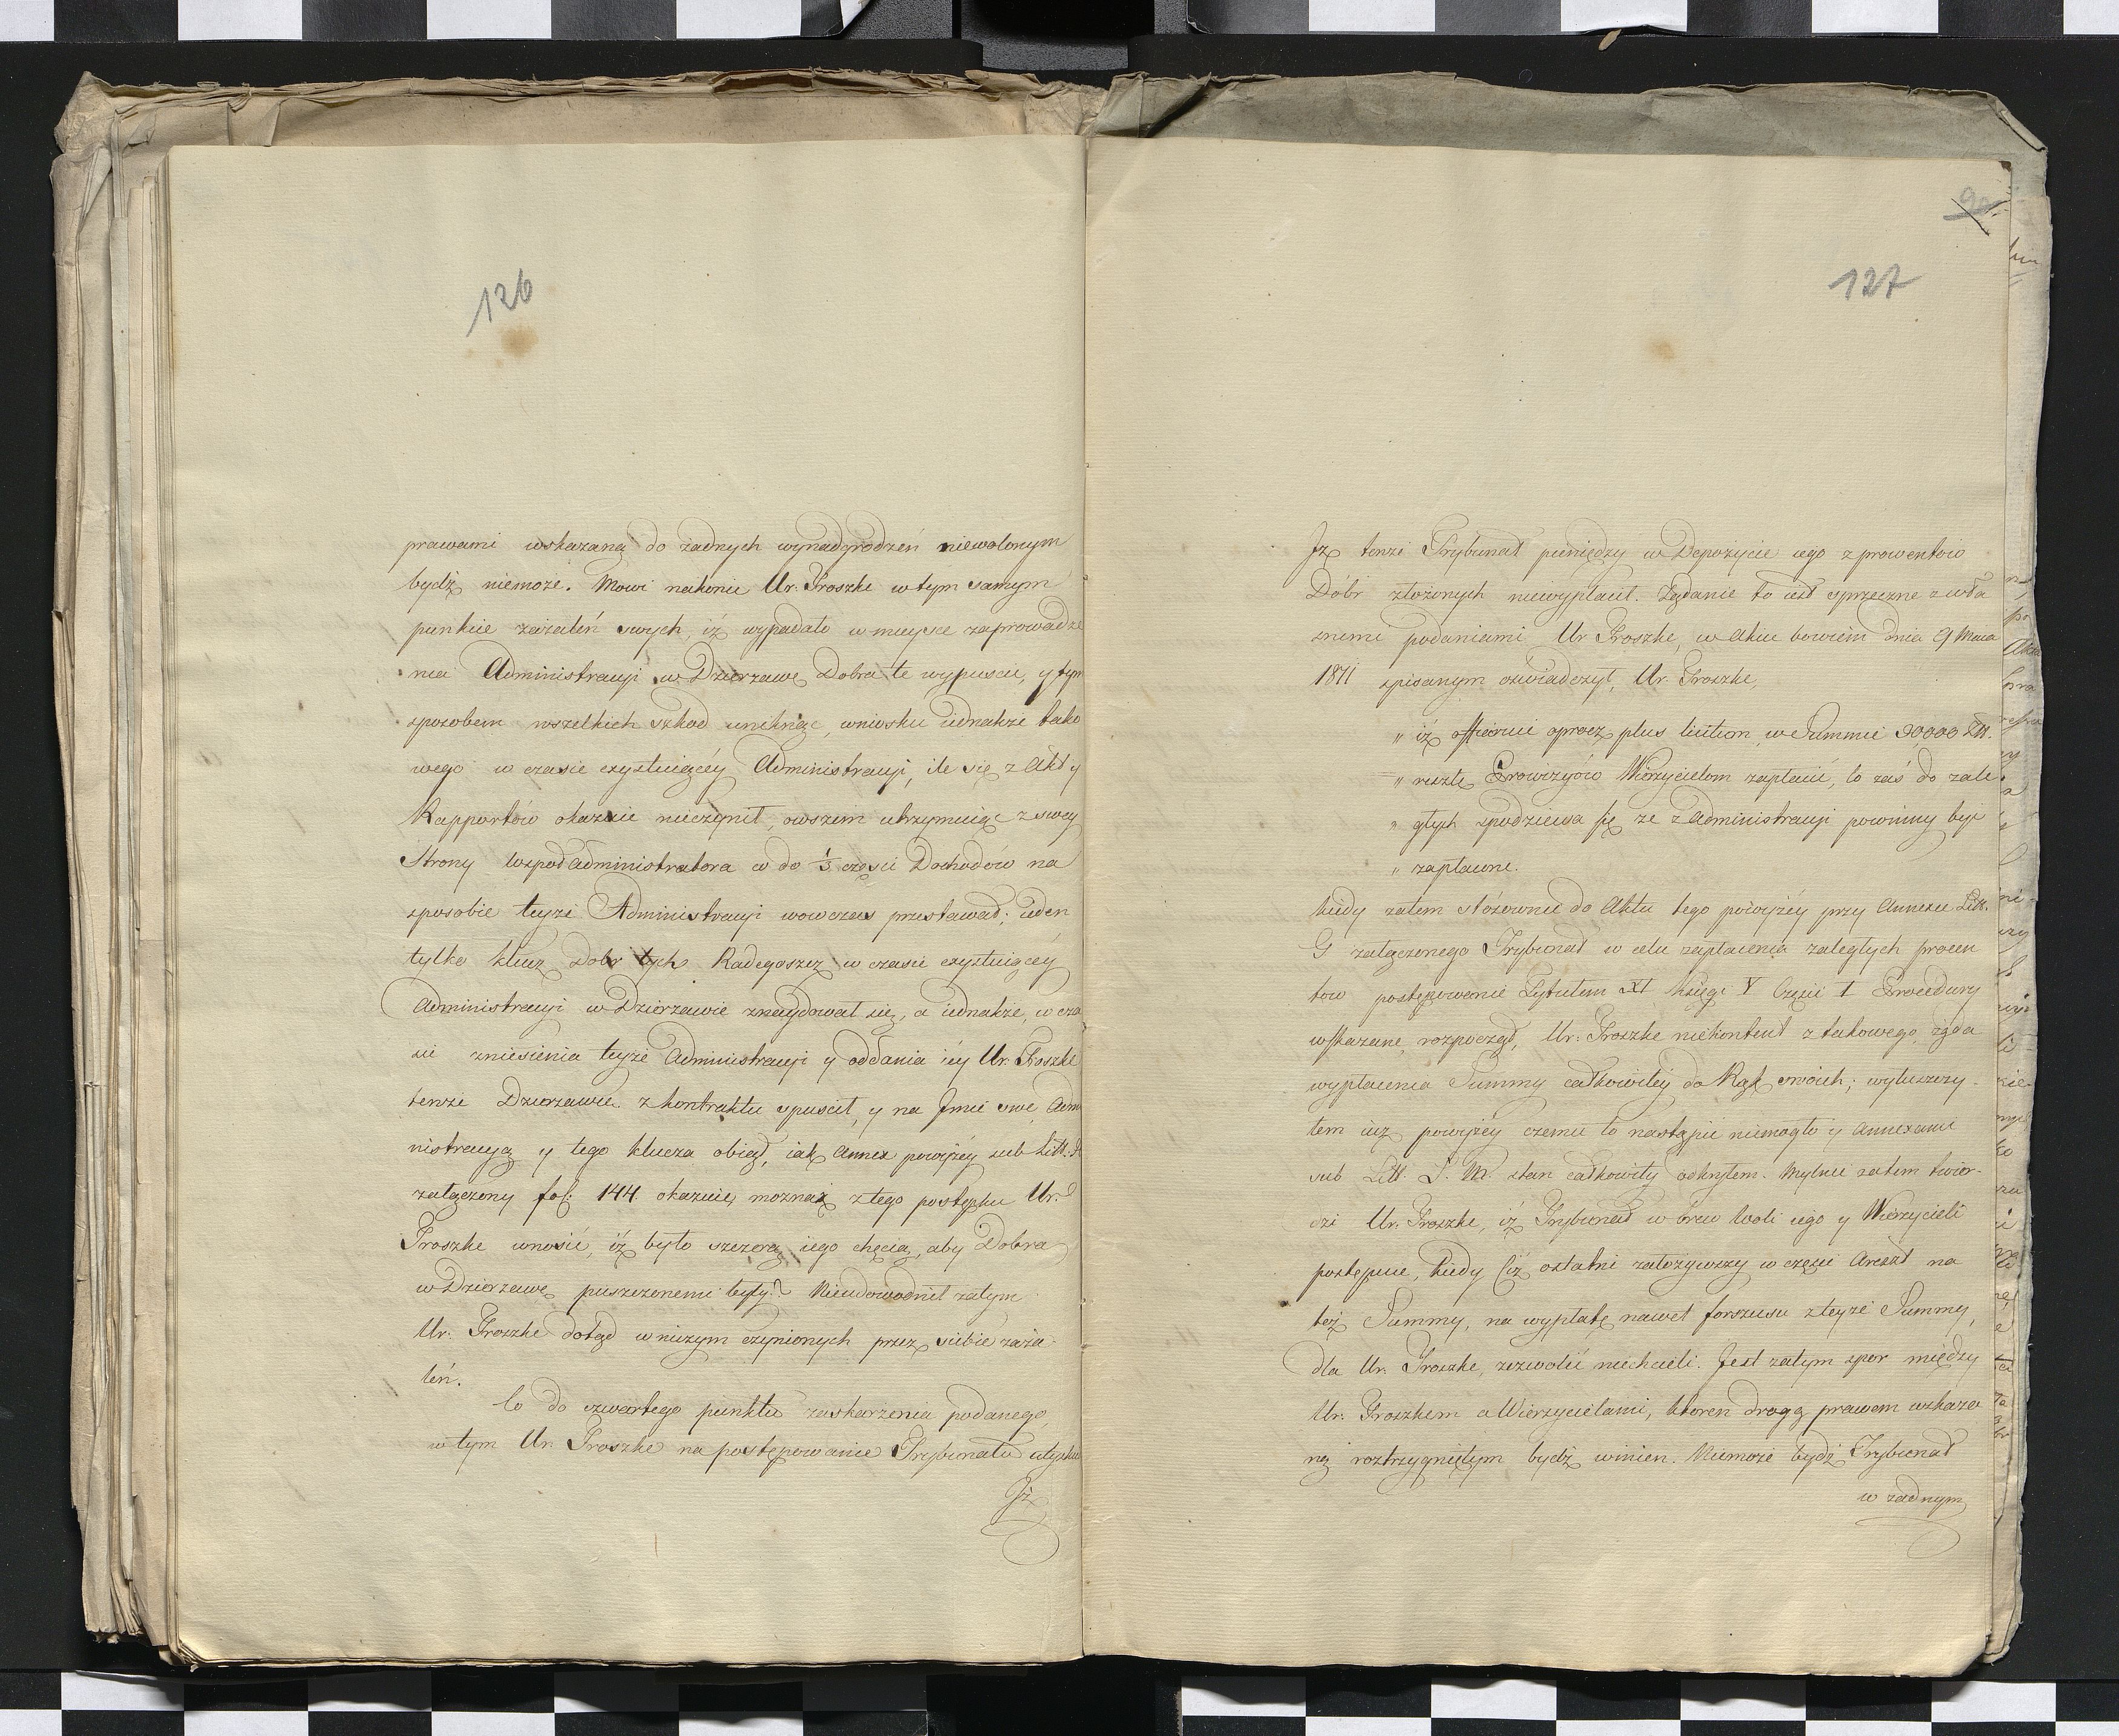 126
prawami wskazaną do żadnych wynadgrodzeń niewolonym
bydź niemoże. Mowi nakonie Ur. Troszke w tym samym
punkcie zażaleń swych, iż wypadało w mieysce zaprowadze
nia Administracyi w Dzierzawę Dobra te wypuscić, y tym
sposobem wszelkich szkod uniknąć, wniosku iednakże tako
wego w czasie exystuiącéy Administracyi, ile się z Akt y
Rapportów okazuie nieczynił, owszem utrzymuiąc z swey
Strony WspołAdministratora co do 1/3 części Dochodów na
sposobie teyże Administracyi wowczas przestawał; ieden
tylko klucz Dobr tych Radegoszcz w czasie exystuiącéy
Administracyi w Dzierzawie znaydował się, a iednakże, w cza
sie zniesienia teyże Administracyi y oddania iéy Ur. Troszke
tenże Dzierzawcę z kontraktu spuscił, y na Jmie swe Admi
nistracyą y tego klucza obiął, iak Annex powyżéy sub Litt.
załączony fol: 144 okazuie, możnaż z tego postępku Ur.
Troszke wnosić, iż było szczerą iego chęcią, aby Dobra
w Dzierzawę puszczonemi były? Nieudowodnił zatym
Ur. Troszke dotąd w niczym czynionych przez siebie zaża
leń.
Co do czwartego punktu zaskarżenia podanego,
w tym Ur. Troszke na postępowanie Trybunału utyskuie
Jż
127
Jż tenże Trybunał pieniędzy w Depozycie iego z prowentow
Dóbr złożonych niewypłacił. Żądanie to iest sprzeczne z wła
snemi podaniami Ur Troszke, w Akcie bowiem dnia 9 Maia
1811 spisanym oswiadczył, Ur. Troszke,
„ iż offieruie oprocz plus licitum w Summie 30,000 Złt.
„ resztę Prowizyów Wierzycielom zapłacić, co zaś do zale
„ głych spodziewa się że z Administracyi powinny być
„ zapłacone.
kiedy zatem stósownie do Aktu tego powyżéy przy Annexie Litt.
G załączonego Trybunał w celu zapłacenia zaległych procen
tow postępowanie Tytułem XI Księgi V Części I Procedury
wskazane, rozpoczął, Ur. Troszke niekontent z takowego, żąda
wypłacenia Summy całkowitéy do Rąk swoich; wyłuszczy-
łem iuż powyżey czemu to nastąpić niemogło y annexami
sub Litt. L. M. stan całkowity odkryłem. Mylnie zatem twier-
dzi Ur. Troszke, iż Trybunał w brew Woli iego y Wierzycieli
postępuie, kiedy Ciż ostatni założywszy w części Areszt na
też Summy, na wypłatę nawet forszusu z teyże Summy,
dla Ur. Troszke, zezwolić niechcieli. Jest zatym spor między
Ur. Troszkem a Wierzycielami, ktoren drogą prawem wskaza
ną roztrzygniętym bydź winien. Niemoże bydź Trybunał
w żadnym